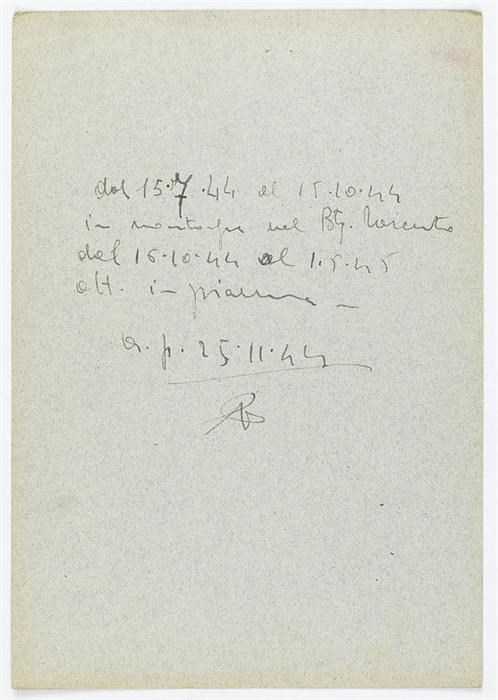 dal 15.7.44 al 15.10.44
in montagna nel Btg.
dal 16.10.44 al 1.5.45
att. in pianura –
a. p. 25.11.44